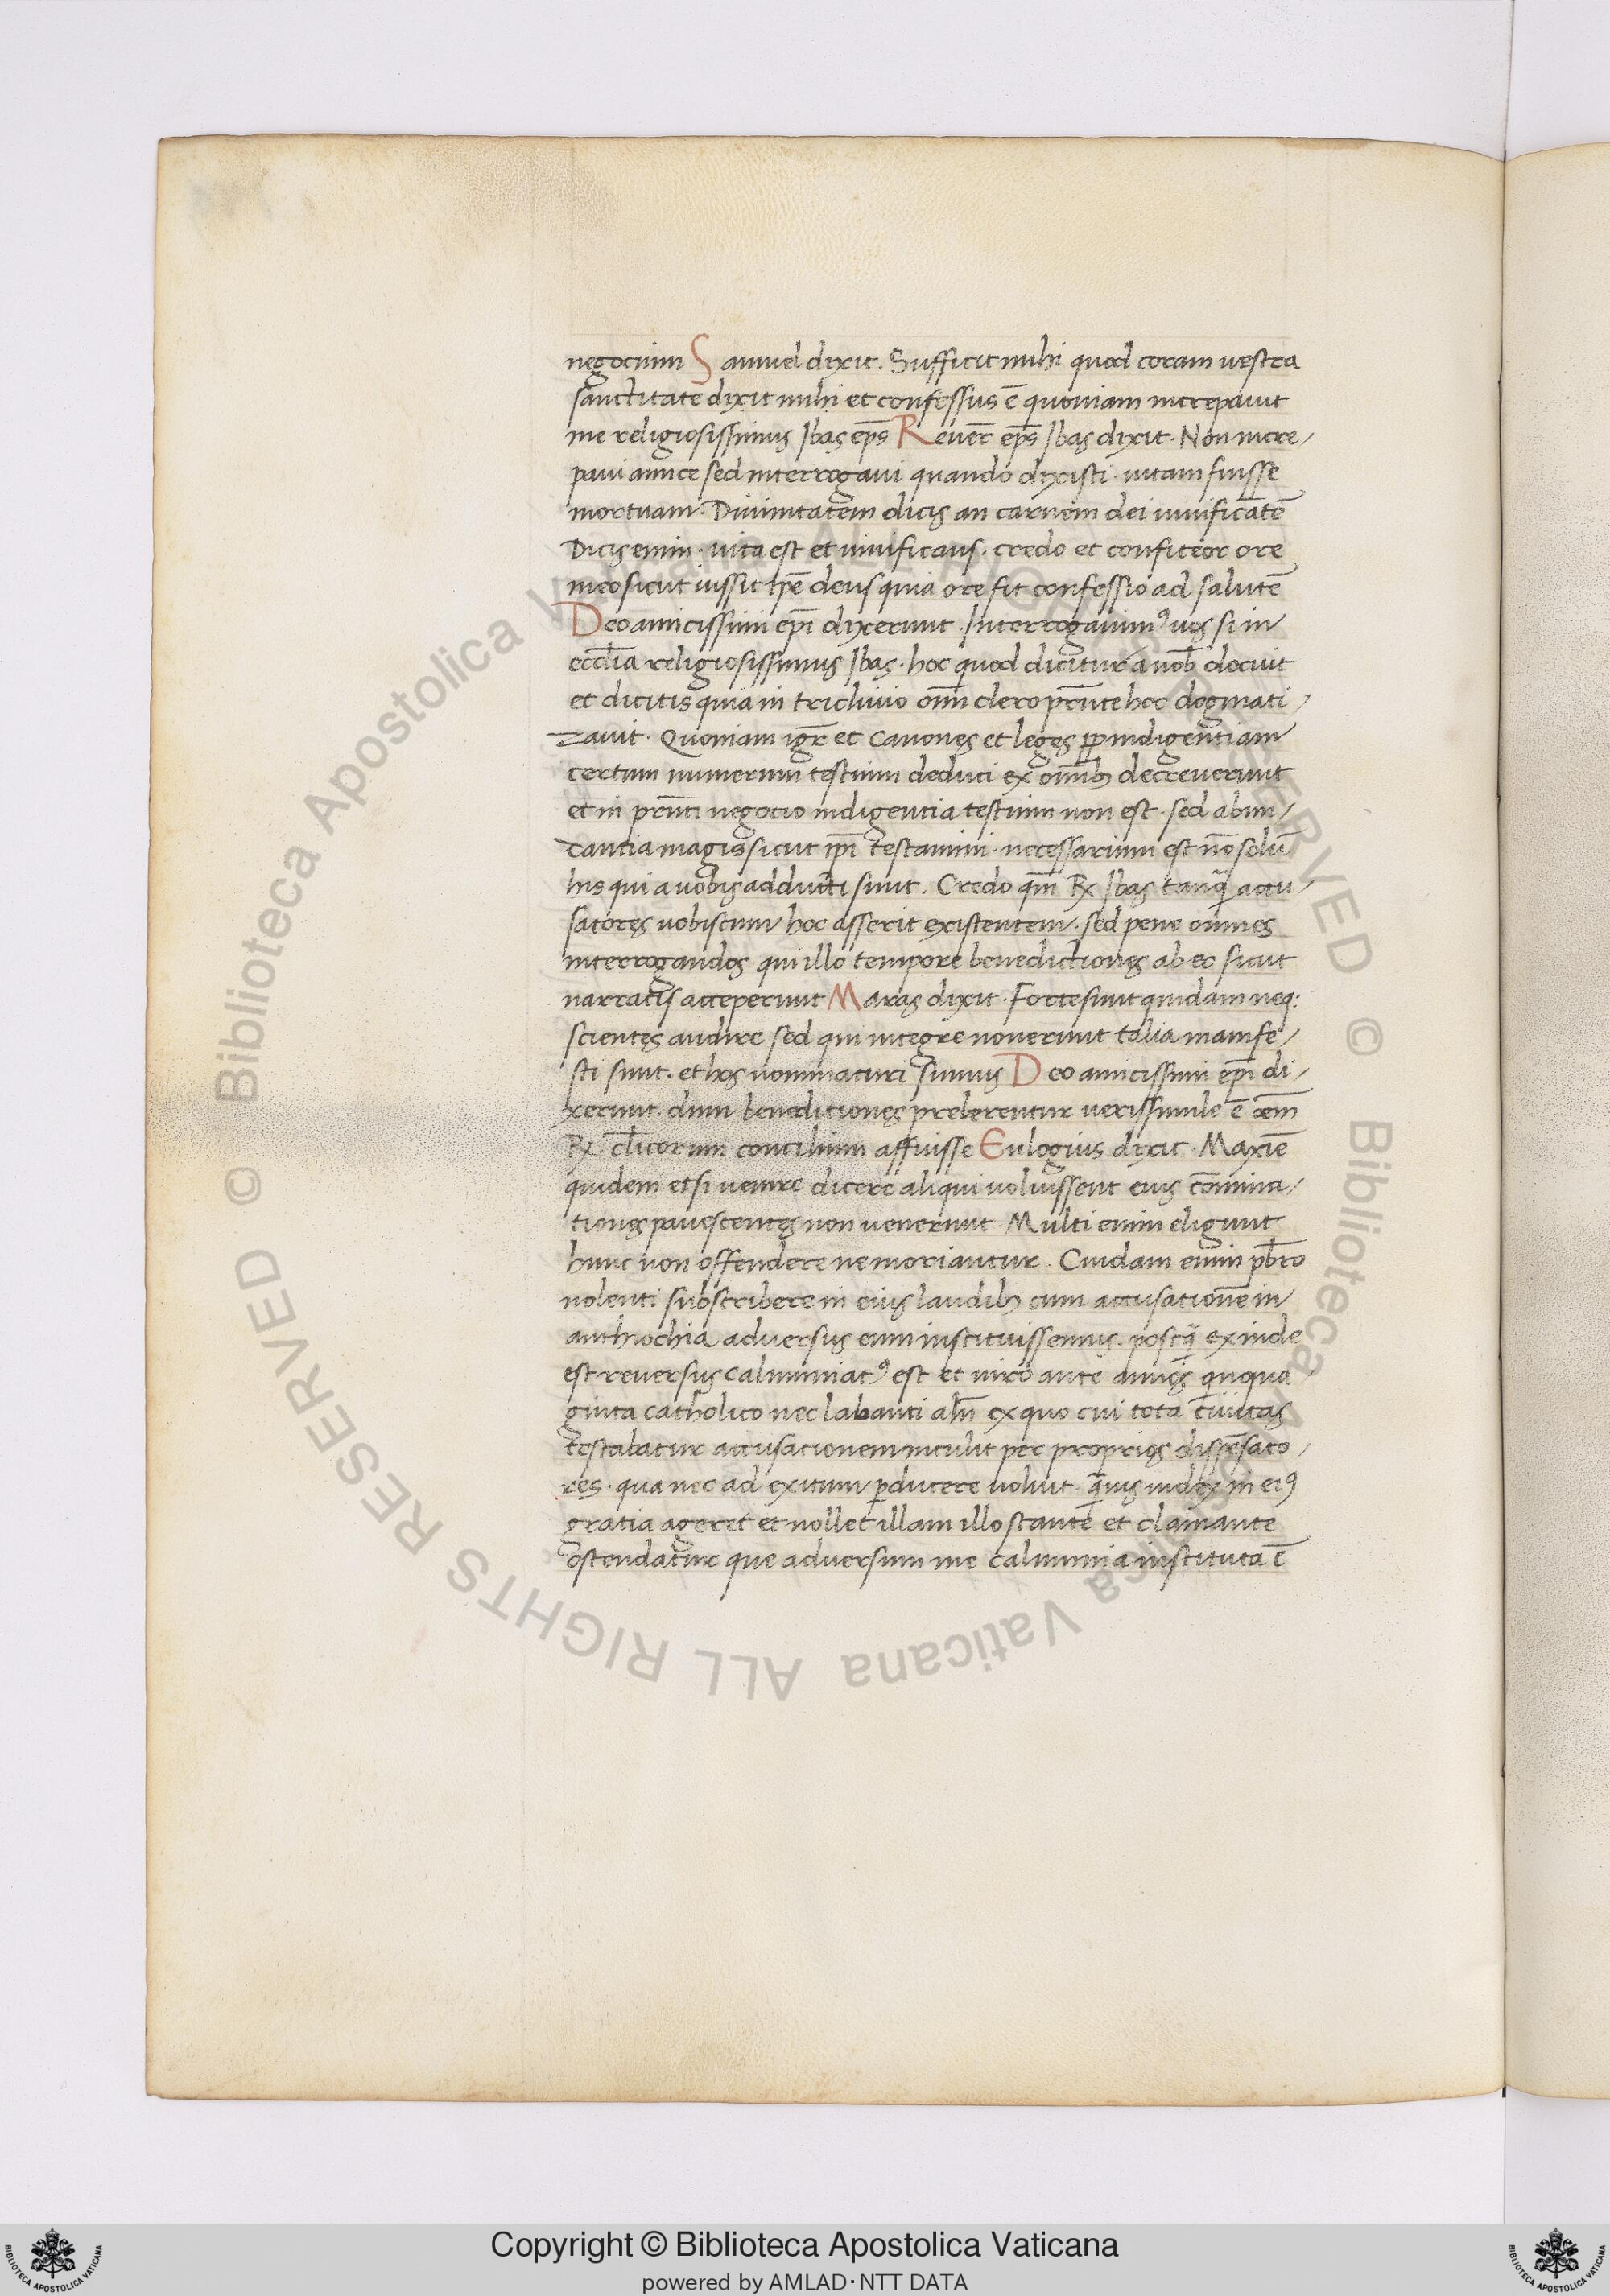 negocium Samuel dixit. Sufficit mihi quod coram uestra
sanctitate dixit mihi et confessus ē quoniam increpauit
me religiosissimus Ibas ep̄s Reuer̄ ep̄s Ibas dixit. Non incre/
paui amice sed interrogaui quando dixisti. uitam fuisse
mortuam. Diuinitatem dicis an carnem dei uiuificatē
Dicis enim. uita est et uiuificans. credo et confiteor ore
meo sicut iussit ip̄e deus quia ore fit confessio ad salutē
Deo amicissimi ep̄i dixerunt. Interrogauimꝰ uos si in
eccl̄ia religiosissimus Ibas. hoc quod dicitur a uob̄ docuit
et dicitis quia in triclinio om̄i clero pr̄nte hoc dogmati/
zauit. Quoniam igr̄ et canones et leges ꝓꝑ indigentiam
certum numerum testium deduci ex om̄ibꝫ decreuerunt
et in pr̄nti negocio indigentia testium non est. sed abun/
dantia magis sicut ip̄i testamini. necessarium est nō solū
his qui a uobis adducti sunt. Credo qm̄ R̷x Ibas tanq̄ accu/
satores uobiscum hoc asserit existentem. sed pene omnes
interrogandos qui illo tempore benedictiones ab eo sicut
narratis acceperunt Maras dixit. Forte sunt quidam neq:
scientes audire sed qui integre nouerunt talia manife/
sti sunt. et hos nominaturi sumus Deo amicissimi ep̄i di/
xerunt. dum beneditiones preberentur uerissimile ē oēm
R̷x cl̄icorum concilium affuisse Eulogius dixit. Maxīe
quidem etsi uenire dicere aliqui uoluissent eius cōmina/
tiones pauescentes non uenerunt. Multi enim eligunt
hunc non offendere ne moriantur. Cuidam enim pb̄ro
nolenti subscribere in eius laudibꝫ cum accusationē in
anthiochia aduersus eum instituissemus. postq̄ exinde
est reuersus calumniatꝰ est et uiro ante annos quinqua/
ginta catholico nec labanti aln̄ ex quo cui tota ciuitas
testabatur accusationem intulit per proprios dispēsato/
res. qua nec ad exitum ꝑducere uoluit. q̄uis iudex in eiꝰ
gratia ageret et nollet illam illo stante et clamante
ostendatur que aduersum me calumnia instituta ē
Copyright © Biblioteca Apostolica Vaticana
powered by AMLAD·NTT DATA
© Biblioteca Apostolica Vaticana ALL RIGHTS RESERVED
© Biblioteca Apostolica Vaticana ALL RIGHTS RESERVED
BIBLIOTECA APOSTOLICA VATICANA
BIBLIOTECA APOSTOLICA VATICANA